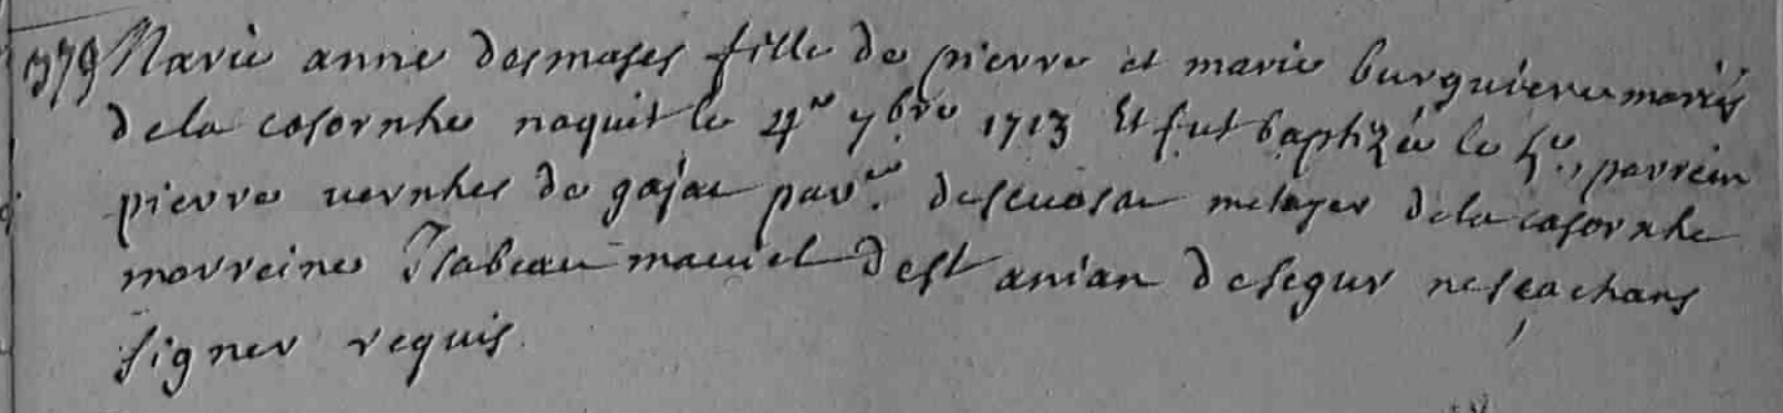 379 Marie anne desmases fille de pierre et marie burguiere mariés
de la casornhe naquit le 4e 7bre 1713 Et fut baptizée le 5e., parrein
pierre vernhes de gajac par. metayer de la casornhe
marreine Isabeau de st anian de segur ne scachans
signer requis.